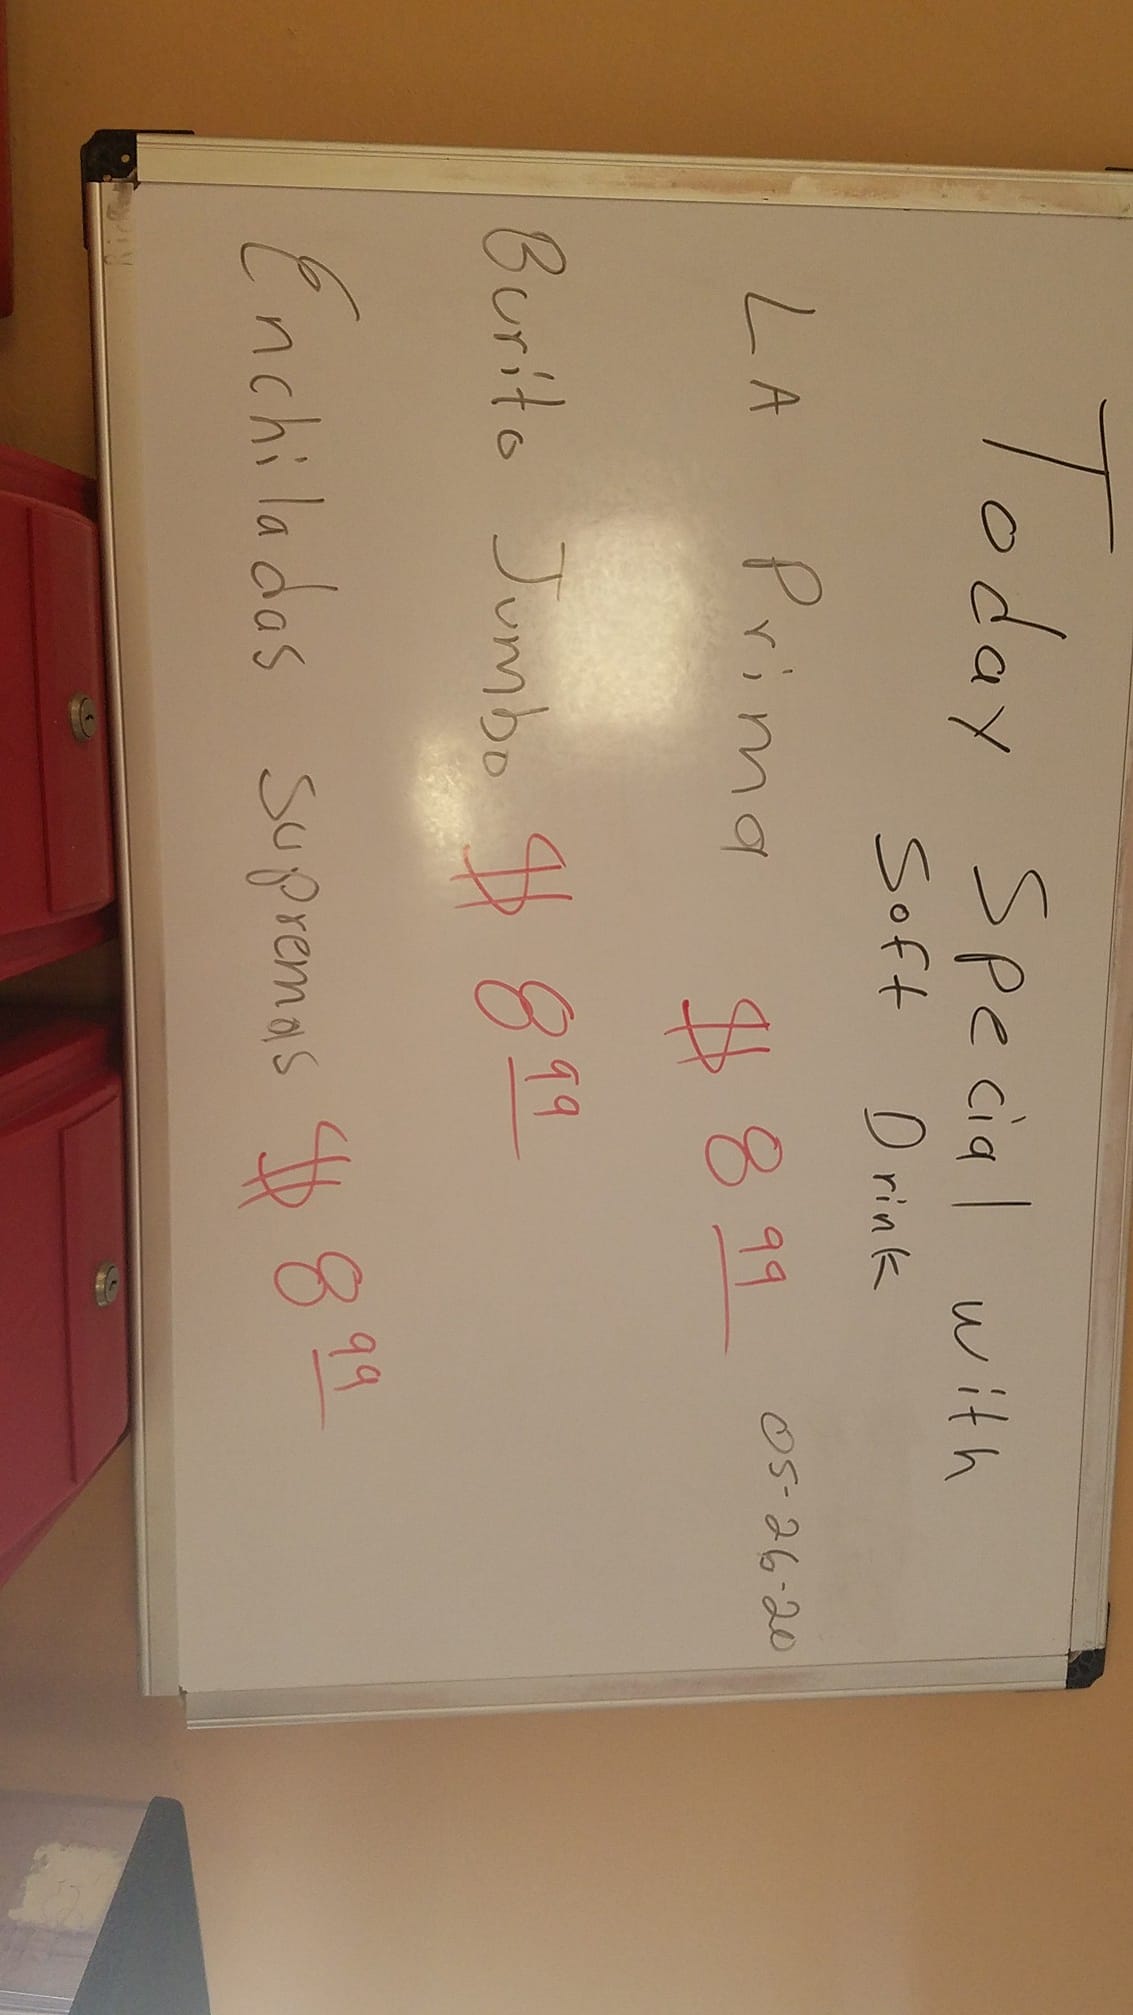 Today Special with
Soft Drink
LA Prima $ 8 99
05-26-20
Burito Jumbo $ 8 99
Enchiladas Supremas $ 8 99